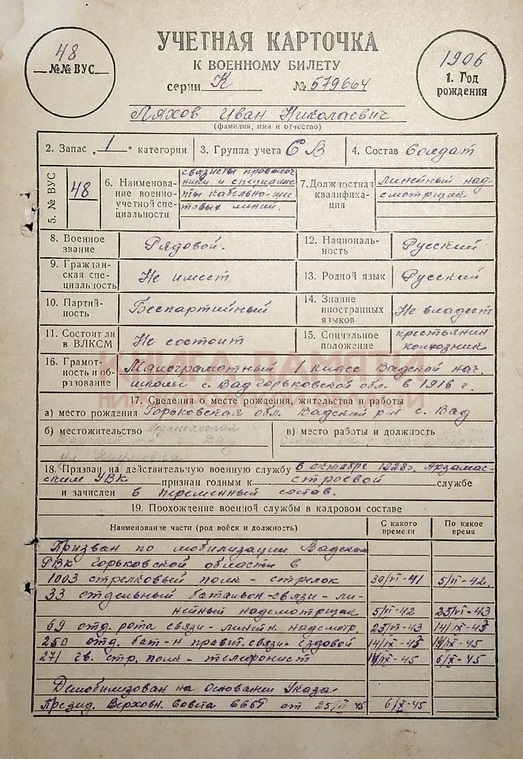 УЧЕТНАЯ КАРТОЧКА
К ВОЕННОМУ БИЛЕТУ
серии К № 579664
48
№№ ВУС
1906
1. Год
рождения
Ляхов Иван Николаевич
(фамилия, имя и отчество)
2. Запас „1" категории
3. Группа учета СВ
4. Состав Солдат
5. № ВУС
48
6. Наименование военно-учетной специальности
связисты проволочники и специалисты кабельно-шестовых линий.
7. Должностная квалификация
линейный надсмотрщик
8. Военное звание
Рядовой.
12. Национальность
Русский
9. Гражданская специальность
Не имеет
13. Родной язык
Русский
10. Партийность
Беспартийный
14. Знание иностранных языков
Не владеет
11. Состоит ли в ВЛКСМ
Не состоит
15. Социальное положение
крестьянин колхозник
16. Грамотность и образование
Малограмотный 1 класс Вадской нач.
школы с. Вад Горьковской обл. в 1916 г.
КНИГА ПАМЯТИ
17. Сведения о месте рождения, жительства и работы
а) место рождения Горьковская обл. Вадский р-н с. Вад
б) местожительство
в) место работы и должность
18. Призван на действительную военную службу в октябре 1928 г. Арзамас-
ским УВК признан годным к строевой службе
и зачислен в переменный состав.
19. Прохождение военной службы в кадровом составе
Наименование части (род войск и должность)
С какого времени
По какое время
Призван по мобилизации Вадским
РВК Горьковской области в
1003 стрелковый полк - стрелок 30/VI-41 5/VI-42
33 отдельный батальон связи - ли-
нейный надсмотрщик 5/VI-42 25/VI-43
69 отд. рота связи - линейн. надсмотр. 25/VI-43
250 отд. бат-н правит. связи - ездовой
271 гв. стр. полк - телефонист
Демобилизован на основании Указа
Презид. Верховн. Совета СССР от 25/VI 45